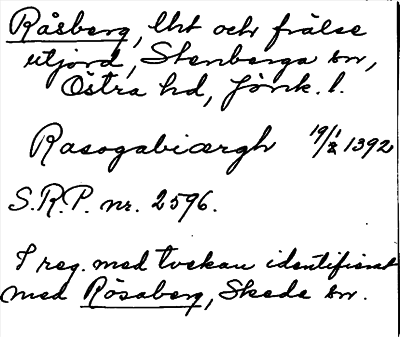 Råsberg, Uht och frälse
utjord, Stenberga sn,
Östra hd, Jönk. l.
Rasogabiærgh 19/1 1392
S.R.P. nr. 2596.
I reg. med tvekan identifierat
med Rösaberg, Skede sn.